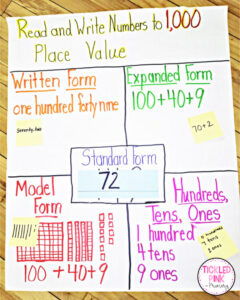 Read and Write Numbers to 1,000
Place Value
Written Form
one hundred forty nine
Seventy-two
Expanded Form
100+40+9
70+2
Standard Form
72
Model
Form
100 + 40 + 9
Hundreds,
Tens, Ones
1 hundred
4 tens
9 ones
hundreds
7 tens
2 ones
TICKLED
PINK
in
Primary